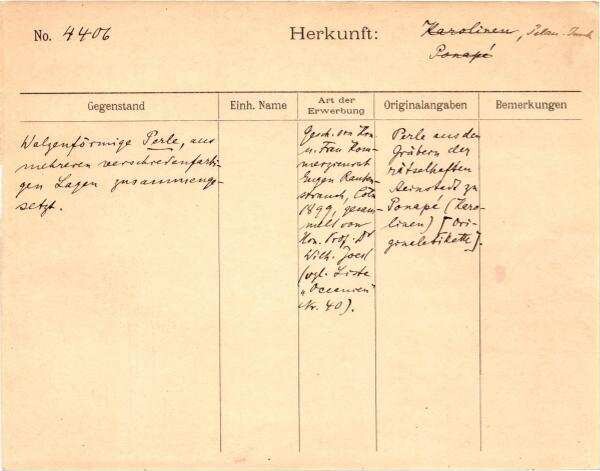 No. 4406
Herkunft:
Karolinen, Pelau-Inseln
Ponapé
Gegenstand
Einh. Name
Art der
Erwerbung
Originalangaben
Bemerkungen
Walzenförmige Perle, aus
mehreren verschiedenfarbi-
gen Lagen zusammenge-
setzt.
Gesch. von Herrn
u. Frau Kom-
merzienrat
Eugen Rauten-
strauch, Cöln
1899, gesam-
melt von
Hrn. Prof. Dr
Wilh. Joest
(vgl. Liste
"Oceanien"
Nr. 40).
Perle aus den
Gräbern der
rätselhaften
Steinstadt zu
Ponapé (Karo-
linen) [Ori-
ginaletikette].